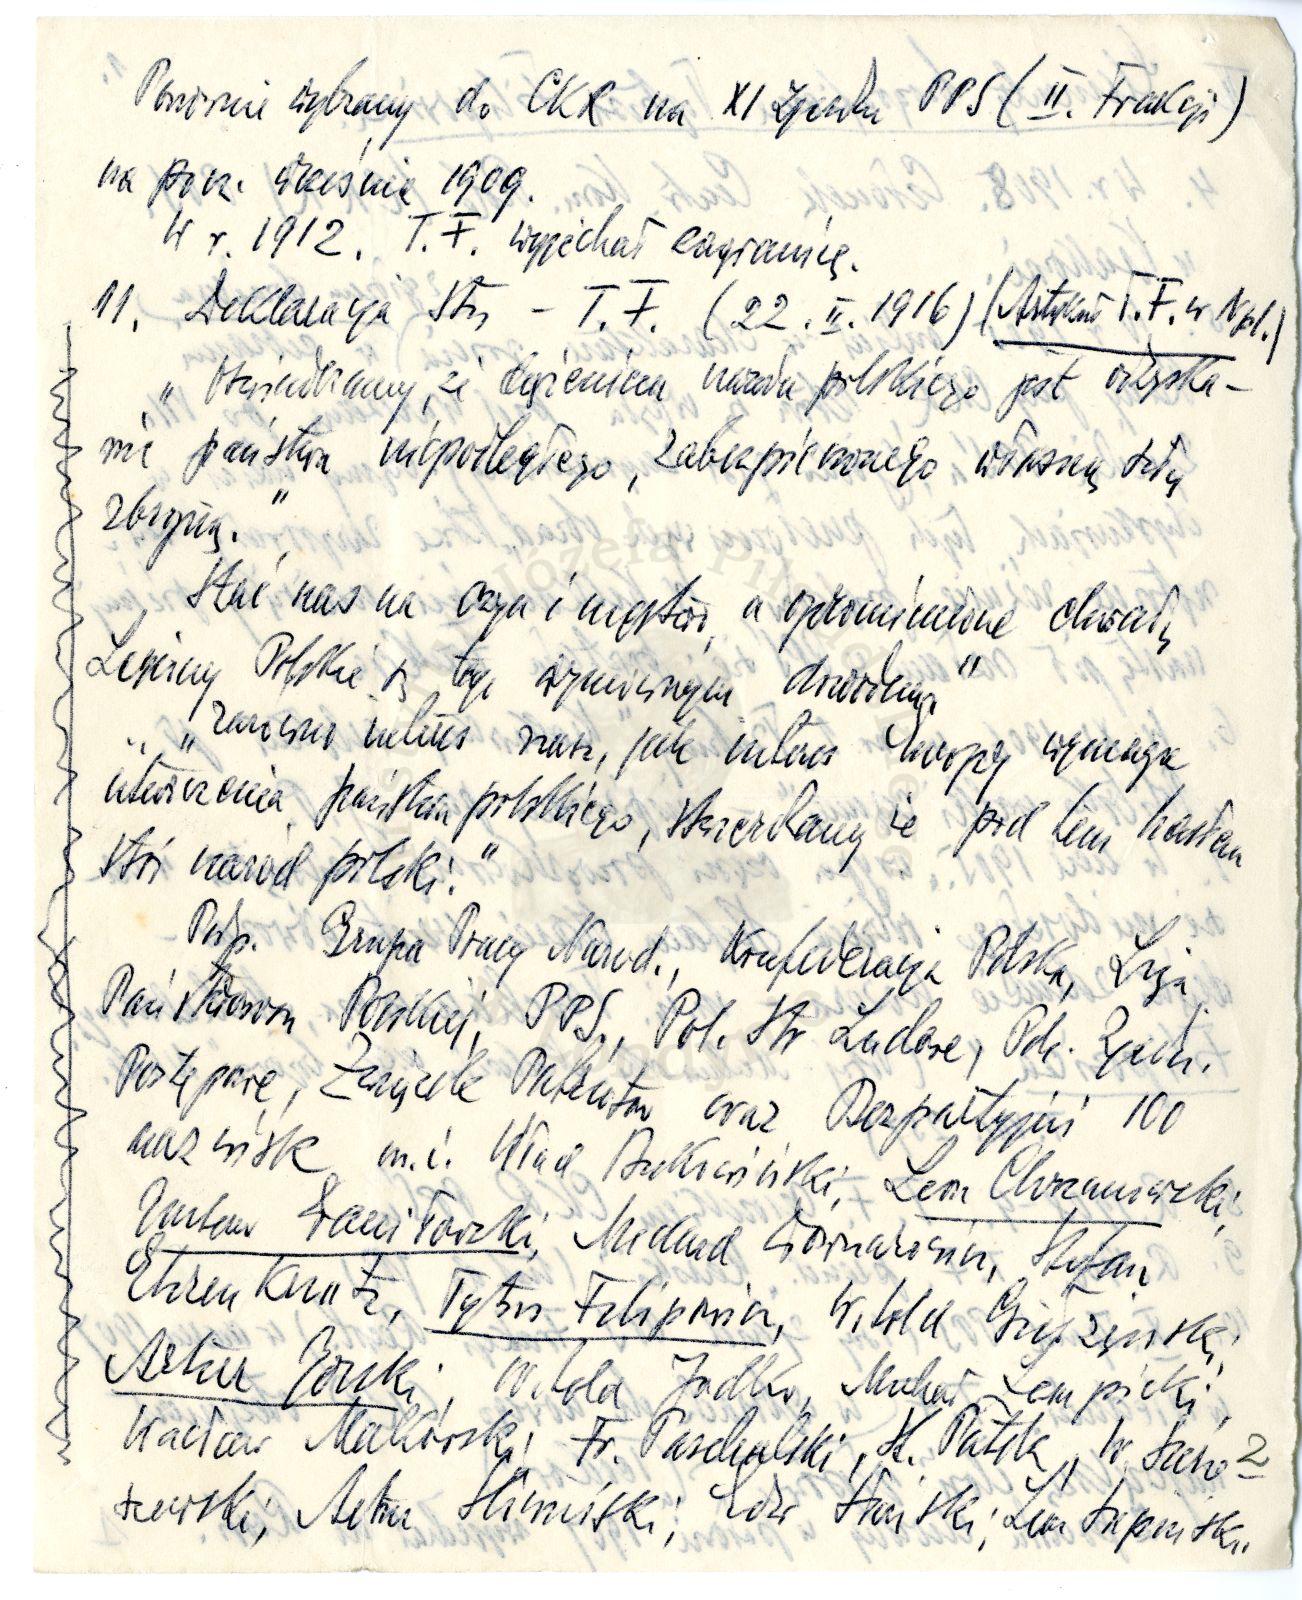 Ponownie wybrany do CKR na XI Zjeździe PPS (II. Frakcji)
na pocz. września 1909.
W r. 1912. T.F. wyjechał zagranicę.
11. Deklaracja Stu – T.F. (22.II.1916) (Artykuł T.F. w Npl.)
„Oświadczamy, że dążeniem narodu polskiego jest odzyska-
nie państwa niepodległego, zabezpieczonego własną siłą
zbrojną."
„Stać nas na czyn i męstwo, a opromienione chwałą
Legiony Polskie są tego wymownym dowodem"
„Zarówno interes nasz, jak interes Europy wymaga
utworzenia państwa polskiego, stwierdzamy że pod tem hasłem
stoi naród polski."
Podp. Grupa Pracy Narod., Konfederacja Polska, Liga
Państwowości Polskiej, PPS., Pol. Str Ludowe, Pol. Zjedn.
Postępowe, Związek Patriotów oraz Bezpartyjni 100
nazwisk m.i. Wład Bukowiński, Leon Chrzanowski,
Gustaw Daniłowski, Medard Downarowicz, Stefan
Ehrenkreutz, Tytus Filipowicz, Witold Giełżyński,
Artur Górski, Witold Jodko, Michał Łempicki,
Wacław Makowski, Fr. Paschalski, St. Patek, W. Siero-
szewski, Artur Śliwiński, Leon Supiński..
2